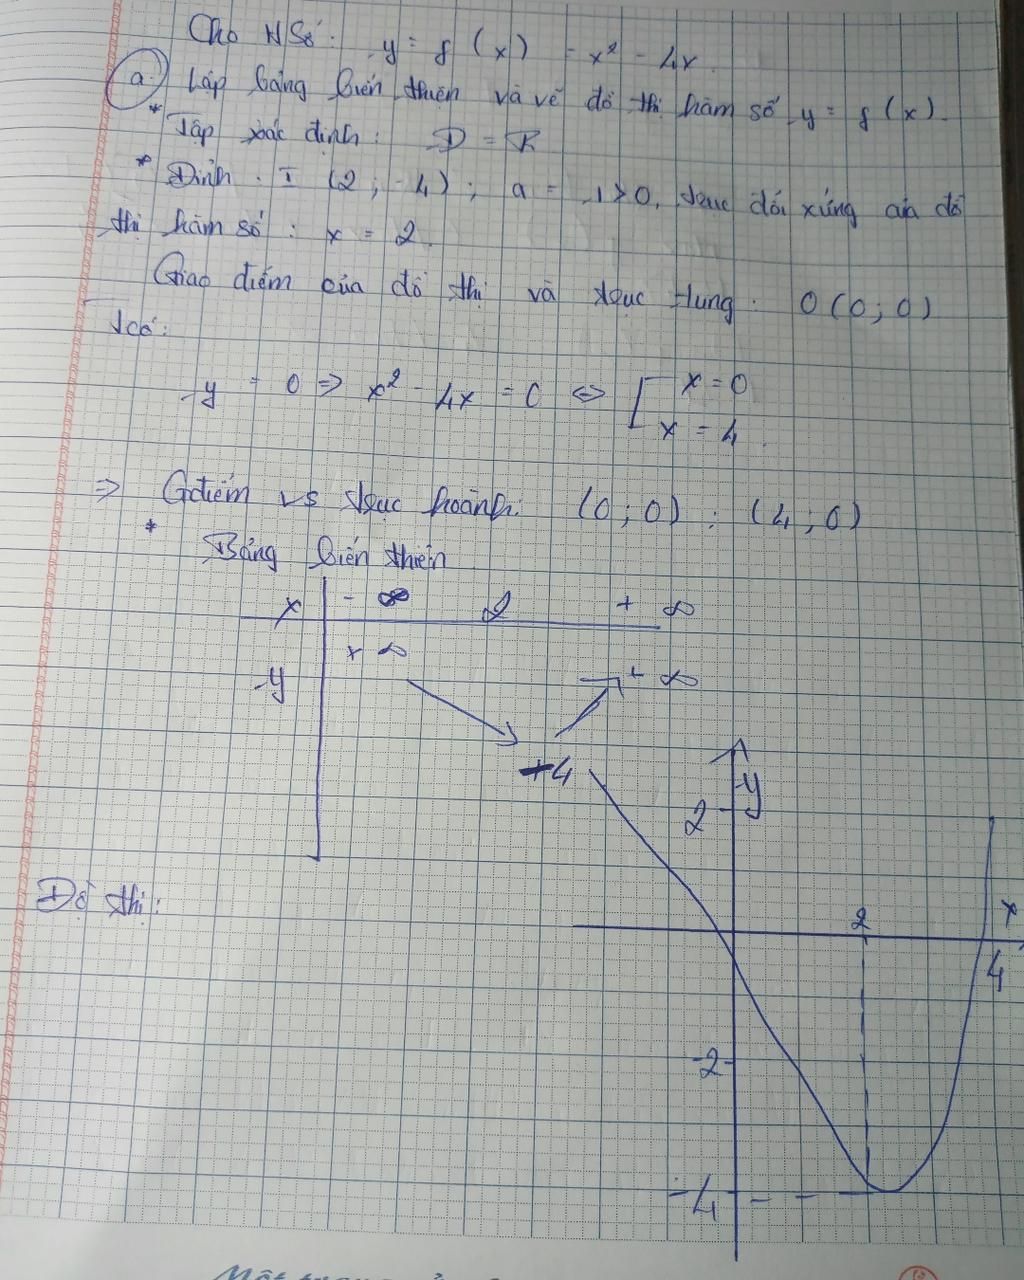 Cho HSố: y = f (x) = x² - 4x.
a. Lập bảng biến thiên và vẽ đồ thị hàm số y = f (x).
* Tập xác định: D = R
* Đỉnh: I (2 ; -4) ; a = 1 > 0, trục đối xứng của đồ
thị hàm số : x = 2.
Giao điểm của đồ thị và trục tung: O (0 ; 0)
Tcó:
y = 0 => x² - 4x = 0 <=> [ x = 0
x = 4.
=> Gđiểm vs trục hoành: (0 ; 0) ; (4 ; 0)
* Bảng biến thiên
x - ∞ 2 + ∞
+ ∞
y + ∞
-4
y
2
Đồ thị:
2 x
4
-2
-4